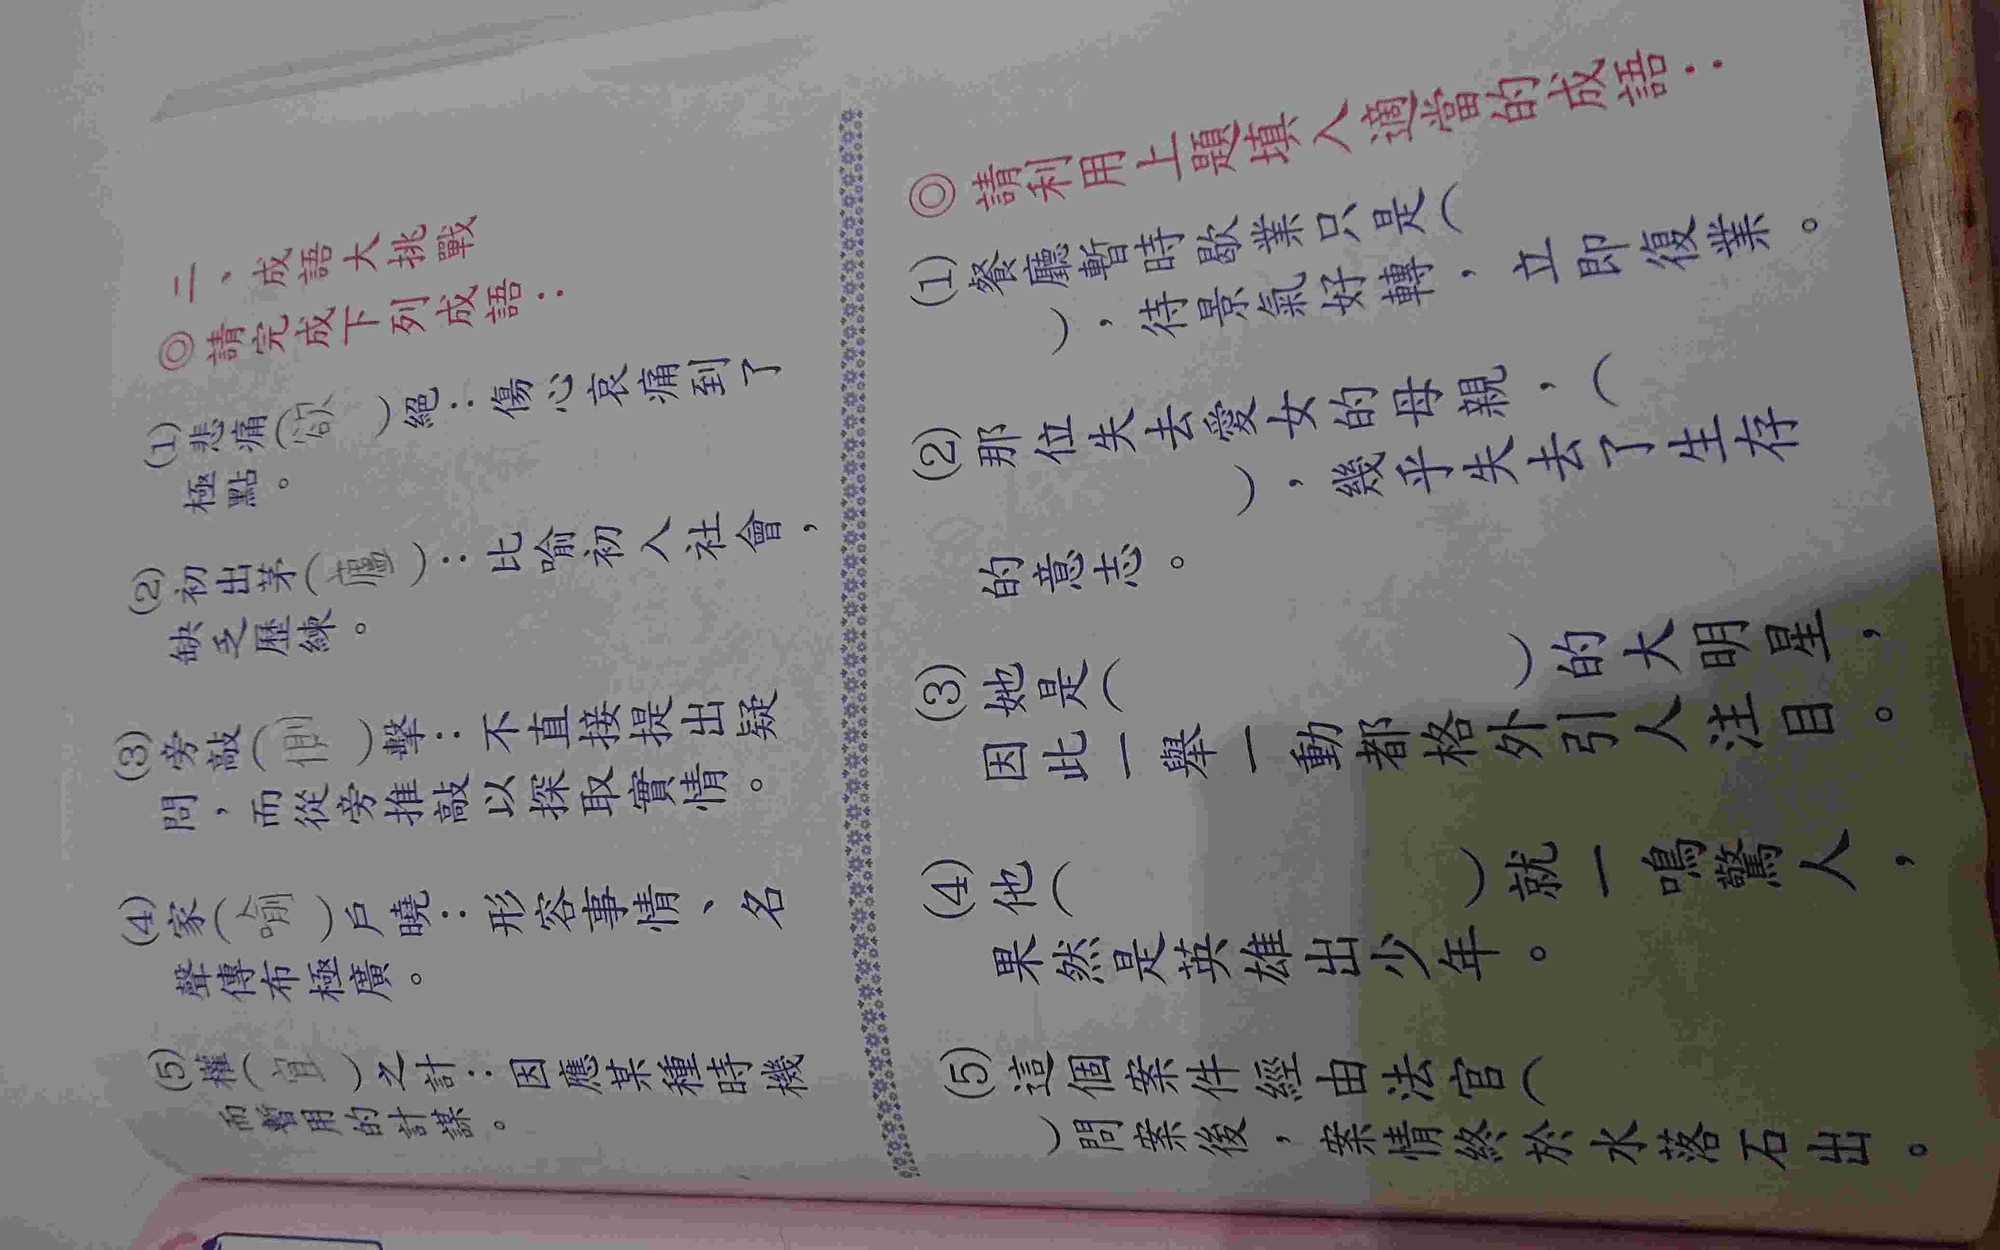 二、成語大挑戰
◎請完成下列成語：
(1)悲痛(欲)絕：傷心哀痛到了
極點。
(2)初出茅(廬)：比喻初入社會，
缺乏歷練。
(3)旁敲(側)擊：不直接提出疑
問，而從旁推敲以探取實情。
(4)家(喻)戶曉：形容事情、名
聲傳布極廣。
(5)權(宜)之計：因應某種時機
而暫用的計謀。
◎請利用上題填入適當的成語：
(1)餐廳暫時歇業只是(
)，待景氣好轉，立即復業。
(2)那位失去愛女的母親，(
)，幾乎失去了生存
的意志。
(3)她是( )的大明星，
因此一舉一動都格外引人注目。
(4)他( )就一鳴驚人，
果然是英雄出少年。
(5)這個案件經由法官(
)問案後，案情終於水落石出。